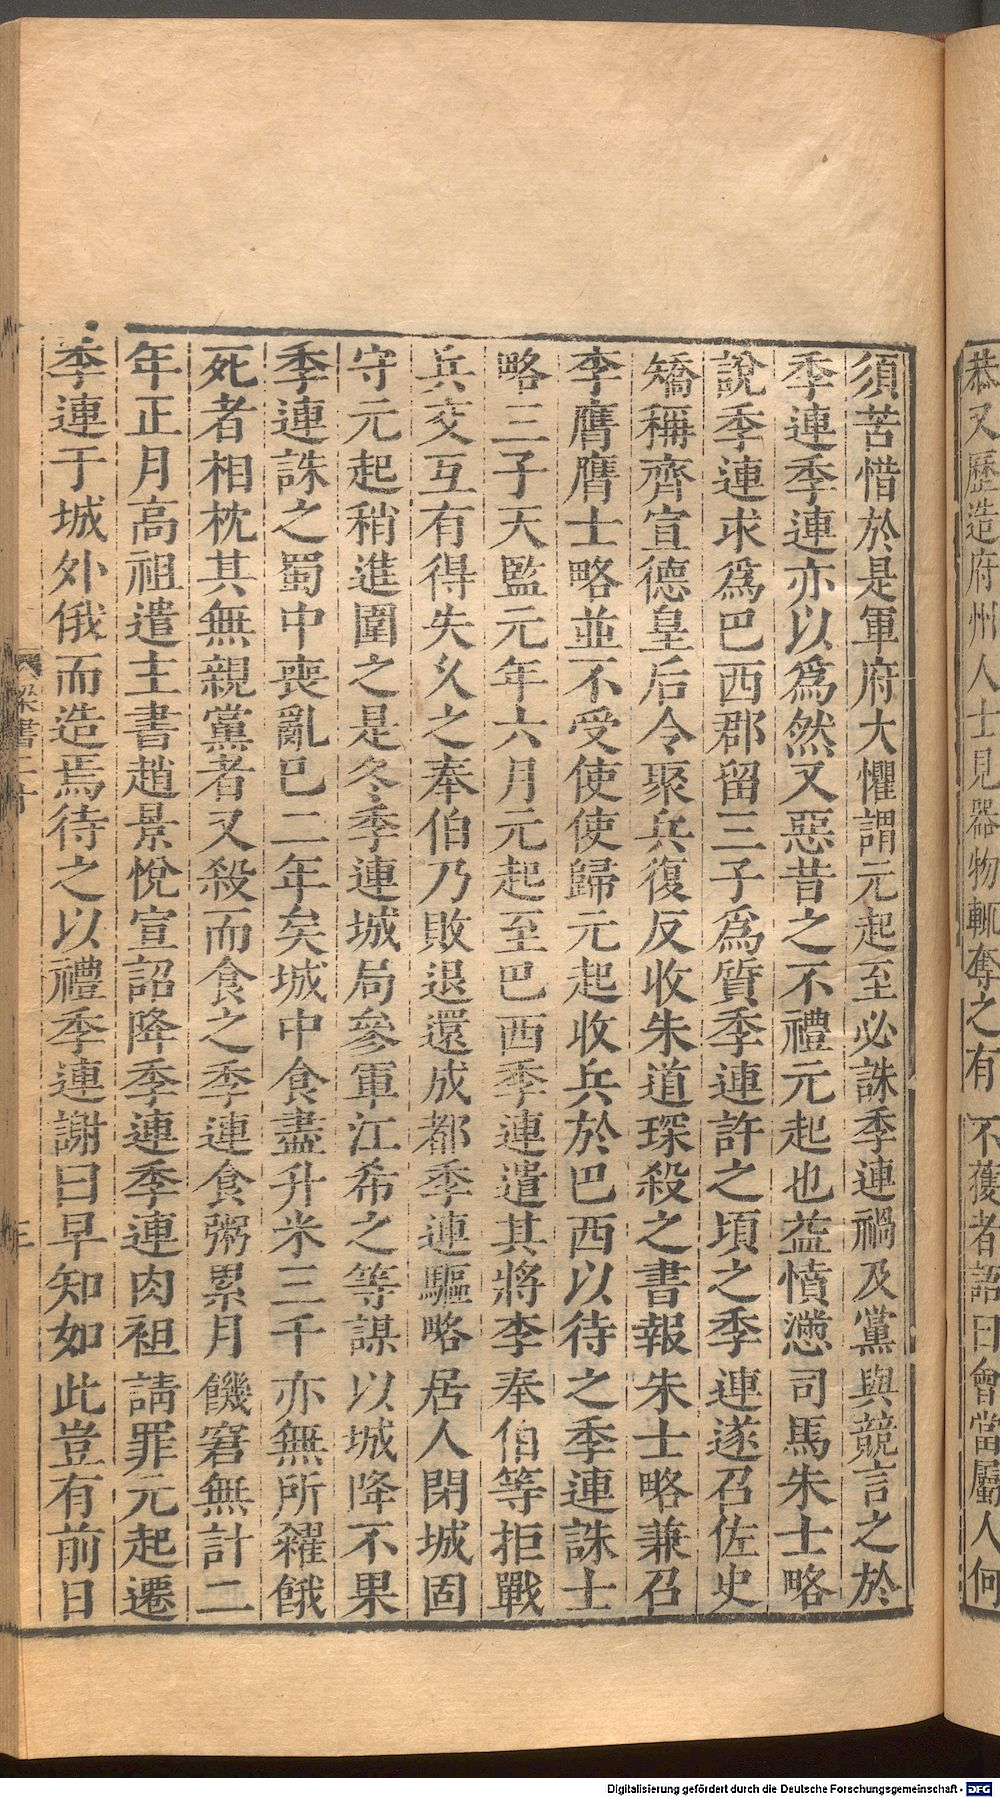 恭又歷造府州人士見器物輒奪之有不獲者語曰會當屬人何
須苦惜於是軍府大懼謂元起至必誅季連禍及黨與競言之於
季連季連亦以爲然又惡昔之不禮元起也益憤懣司馬朱士略
說季連求爲巴西郡留三子爲質季連許之頃之季連遂召佐史
矯稱齊宣德皇后令聚兵復反收朱道琛殺之書報朱士略兼召
李膺膺士略並不受使使歸元起收兵於巴西以待之季連誅士
略三子天監元年六月元起至巴西季連遣其將李奉伯等拒戰
兵交互有得失久之奉伯乃敗退還成都季連驅略居人閉城固
守元起稍進圍之是冬季連城局參軍江希之等謀以城降不果
季連誅之蜀中喪亂巳二年矣城中食盡升米三千亦無所糴餓
死者相枕其無親黨者又殺而食之季連食粥累月饑窘無計二
年正月高祖遣主書趙景悅宣詔降季連季連肉袒請罪元起遷
季連于城外俄而造焉待之以禮季連謝曰早知如此豈有前日
梁書二十
三
Digitalisierung gefördert durch die Deutsche Forschungsgemeinschaft - DFG